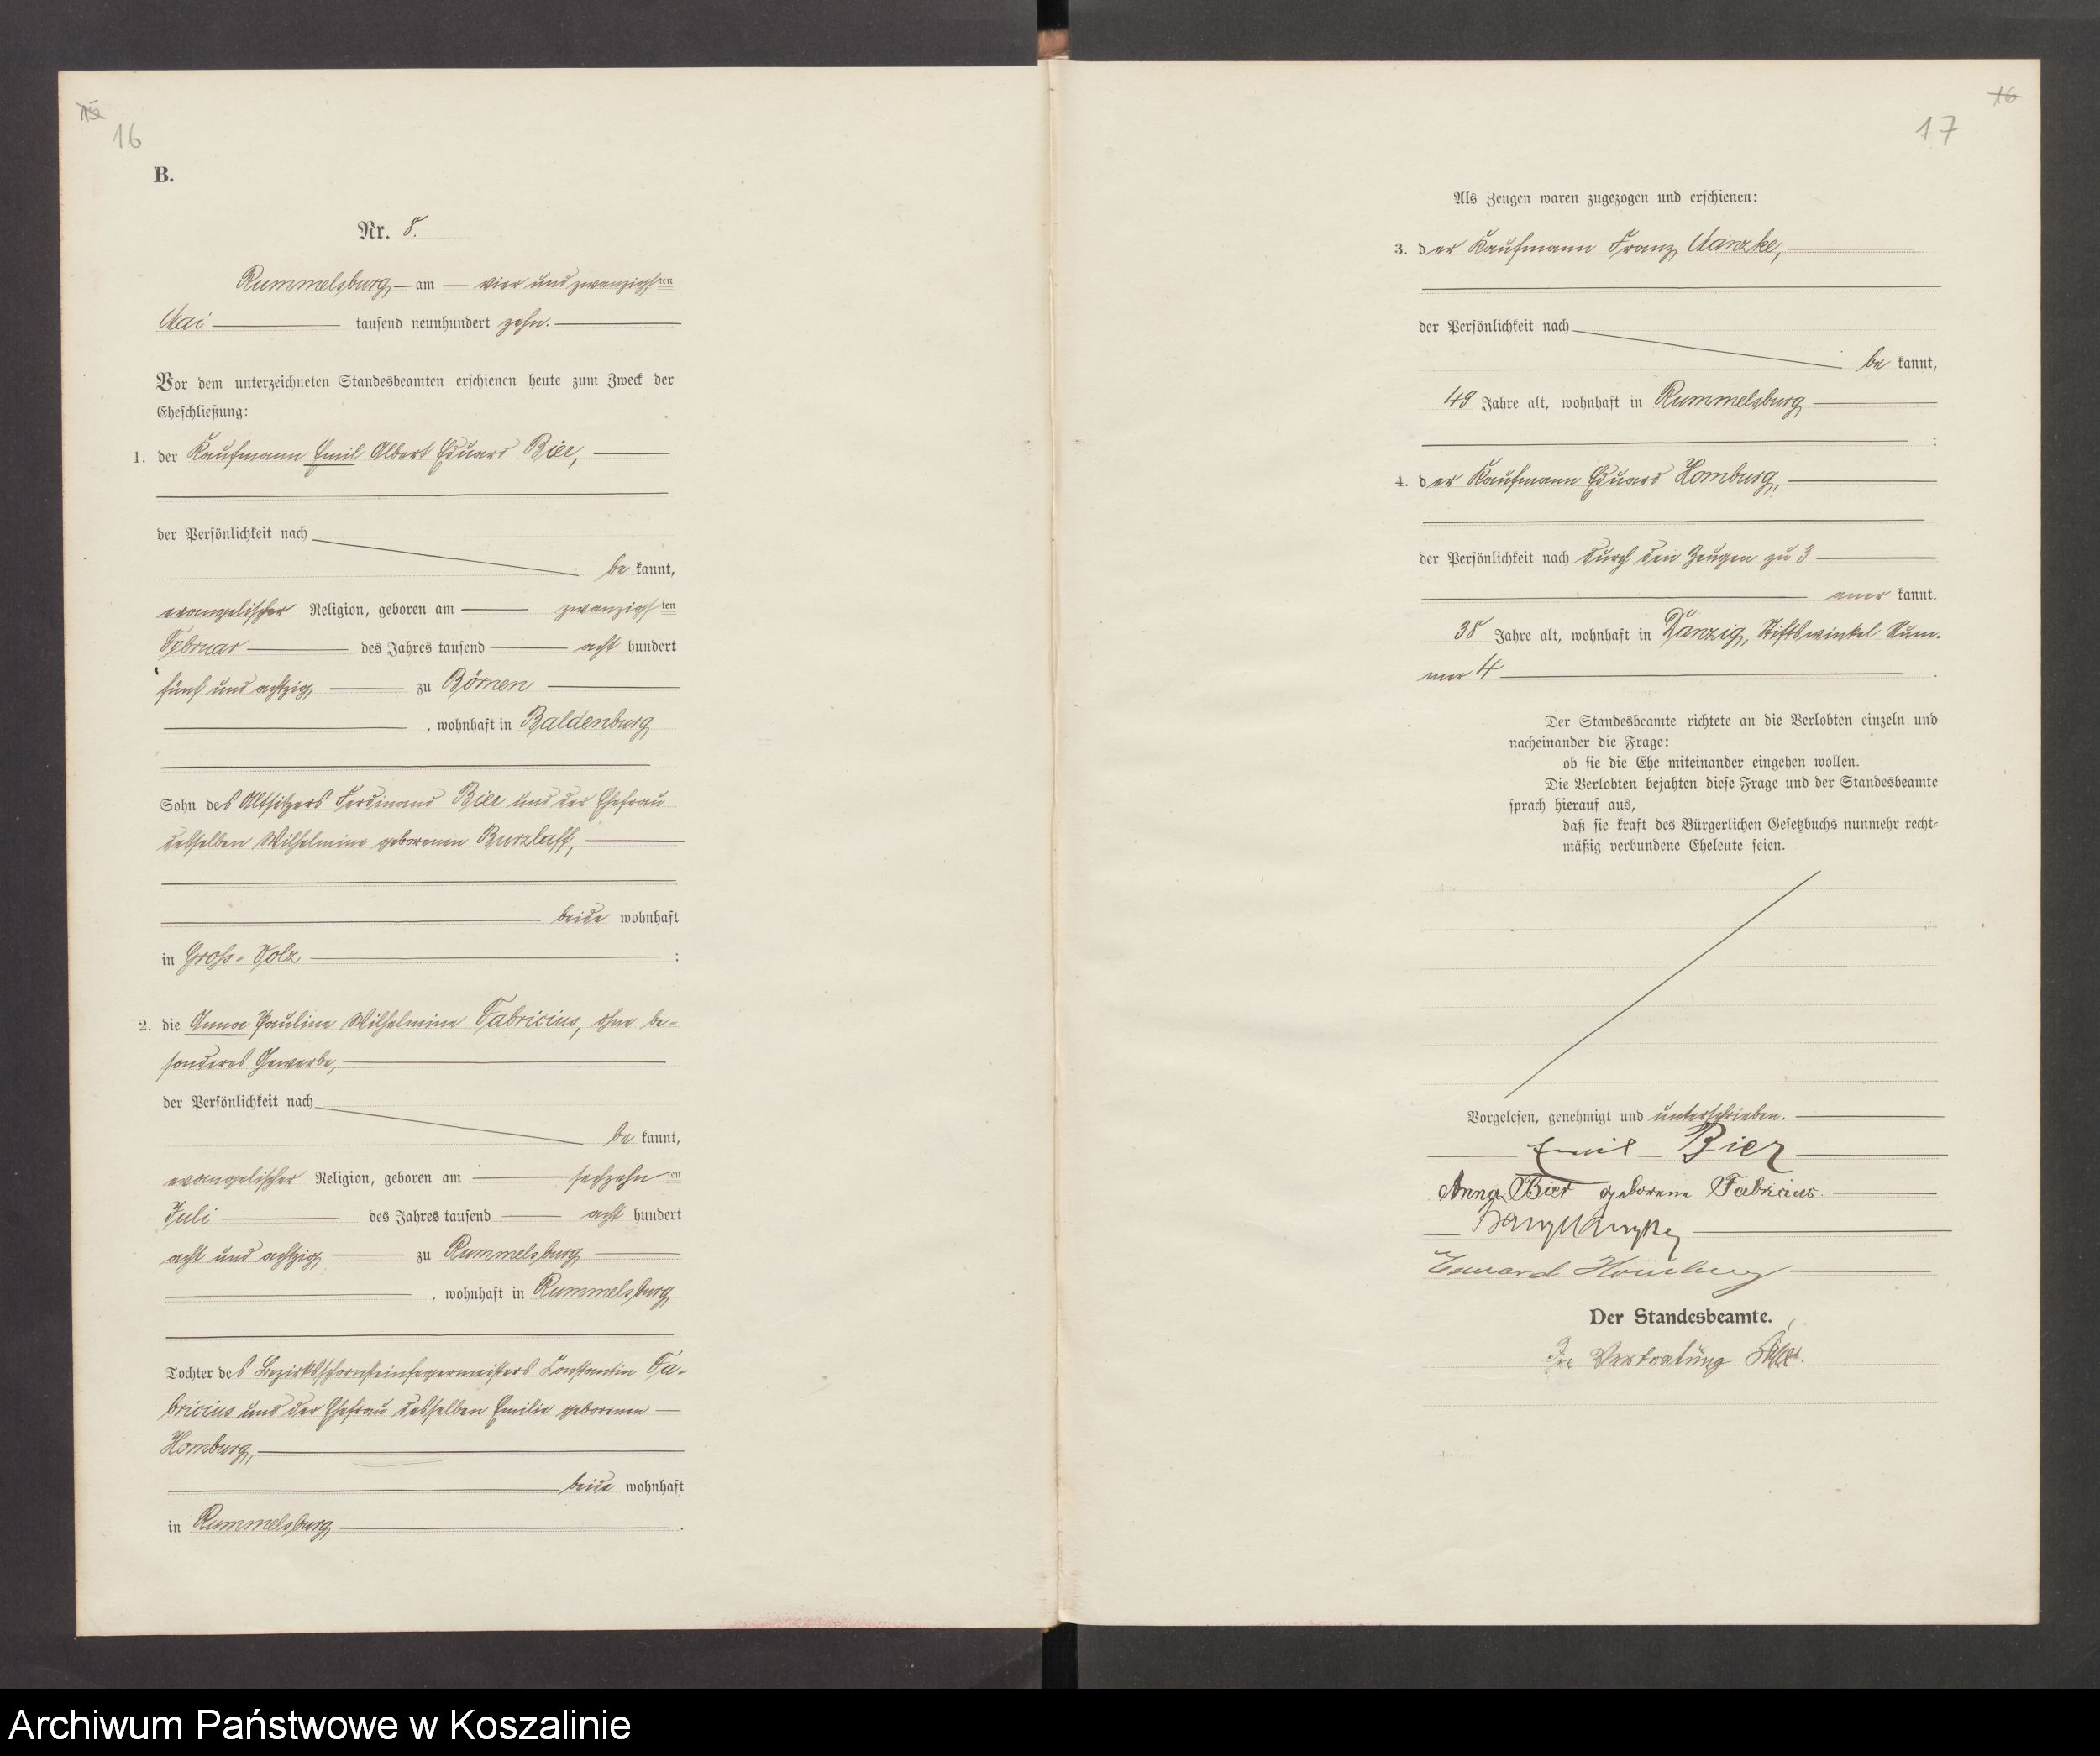 15
16
B.
Nr. 8.
Rummelsburg, am vier und zwanzigsten
Mai tausend neunhundert zehn.
Vor dem unterzeichneten Standesbeamten erschienen heute zum Zweck der
Eheschließung:
1. der Kaufmann Emil Albert Eduard Bier,
der Persönlichkeit nach
be kannt,
evangelischer Religion, geboren am zwanzigsten
Februar des Jahres tausend acht hundert
fünf und achtzig zu Börnen
, wohnhaft in Baldenburg
Sohn des Altsitzers Ferdinand Bier und der Ehefrau
desselben Wilhelmine geborenen Burzlaff,
beide wohnhaft
in Gross-Volz :
2. die Anna Pauline Wilhelmine Fabricius, ohne be-
sonderes Gewerbe,
der Persönlichkeit nach
be kannt,
evangelischer Religion, geboren am sechzehnten
Juli des Jahres tausend acht hundert
acht und achtzig zu Rummelsburg
, wohnhaft in Rummelsburg
Tochter des Bezirksschornsteinfegermeisters Constantin Fa-
bricius und der Ehefrau desselben Emilie geborenen
Homburg,
beide wohnhaft
in Rummelsburg .
16
17
Als Zeugen waren zugezogen und erschienen:
3. der Kaufmann Franz Manzke,
der Persönlichkeit nach
be kannt,
49 Jahre alt, wohnhaft in Rummelsburg
;
4. der Kaufmann Eduard Homburg,
der Persönlichkeit nach durch den Zeugen zu 3
aner kannt.
38 Jahre alt, wohnhaft in Danzig, Stiftswinkel Num-
mer 4 .
Der Standesbeamte richtete an die Verlobten einzeln und
nacheinander die Frage:
ob sie die Ehe miteinander eingehen wollen.
Die Verlobten bejahten diese Frage und der Standesbeamte
sprach hierauf aus,
daß sie kraft des Bürgerlichen Gesetzbuchs nunmehr recht-
mäßig verbundene Eheleute seien.
Vorgelesen, genehmigt und unterschrieben.
Emil Bier
Anna Bier geborene Fabricius.
Franz Manzke
Eduard Homburg
Der Standesbeamte.
In Vertretung
Archiwum Państwowe w Koszalinie